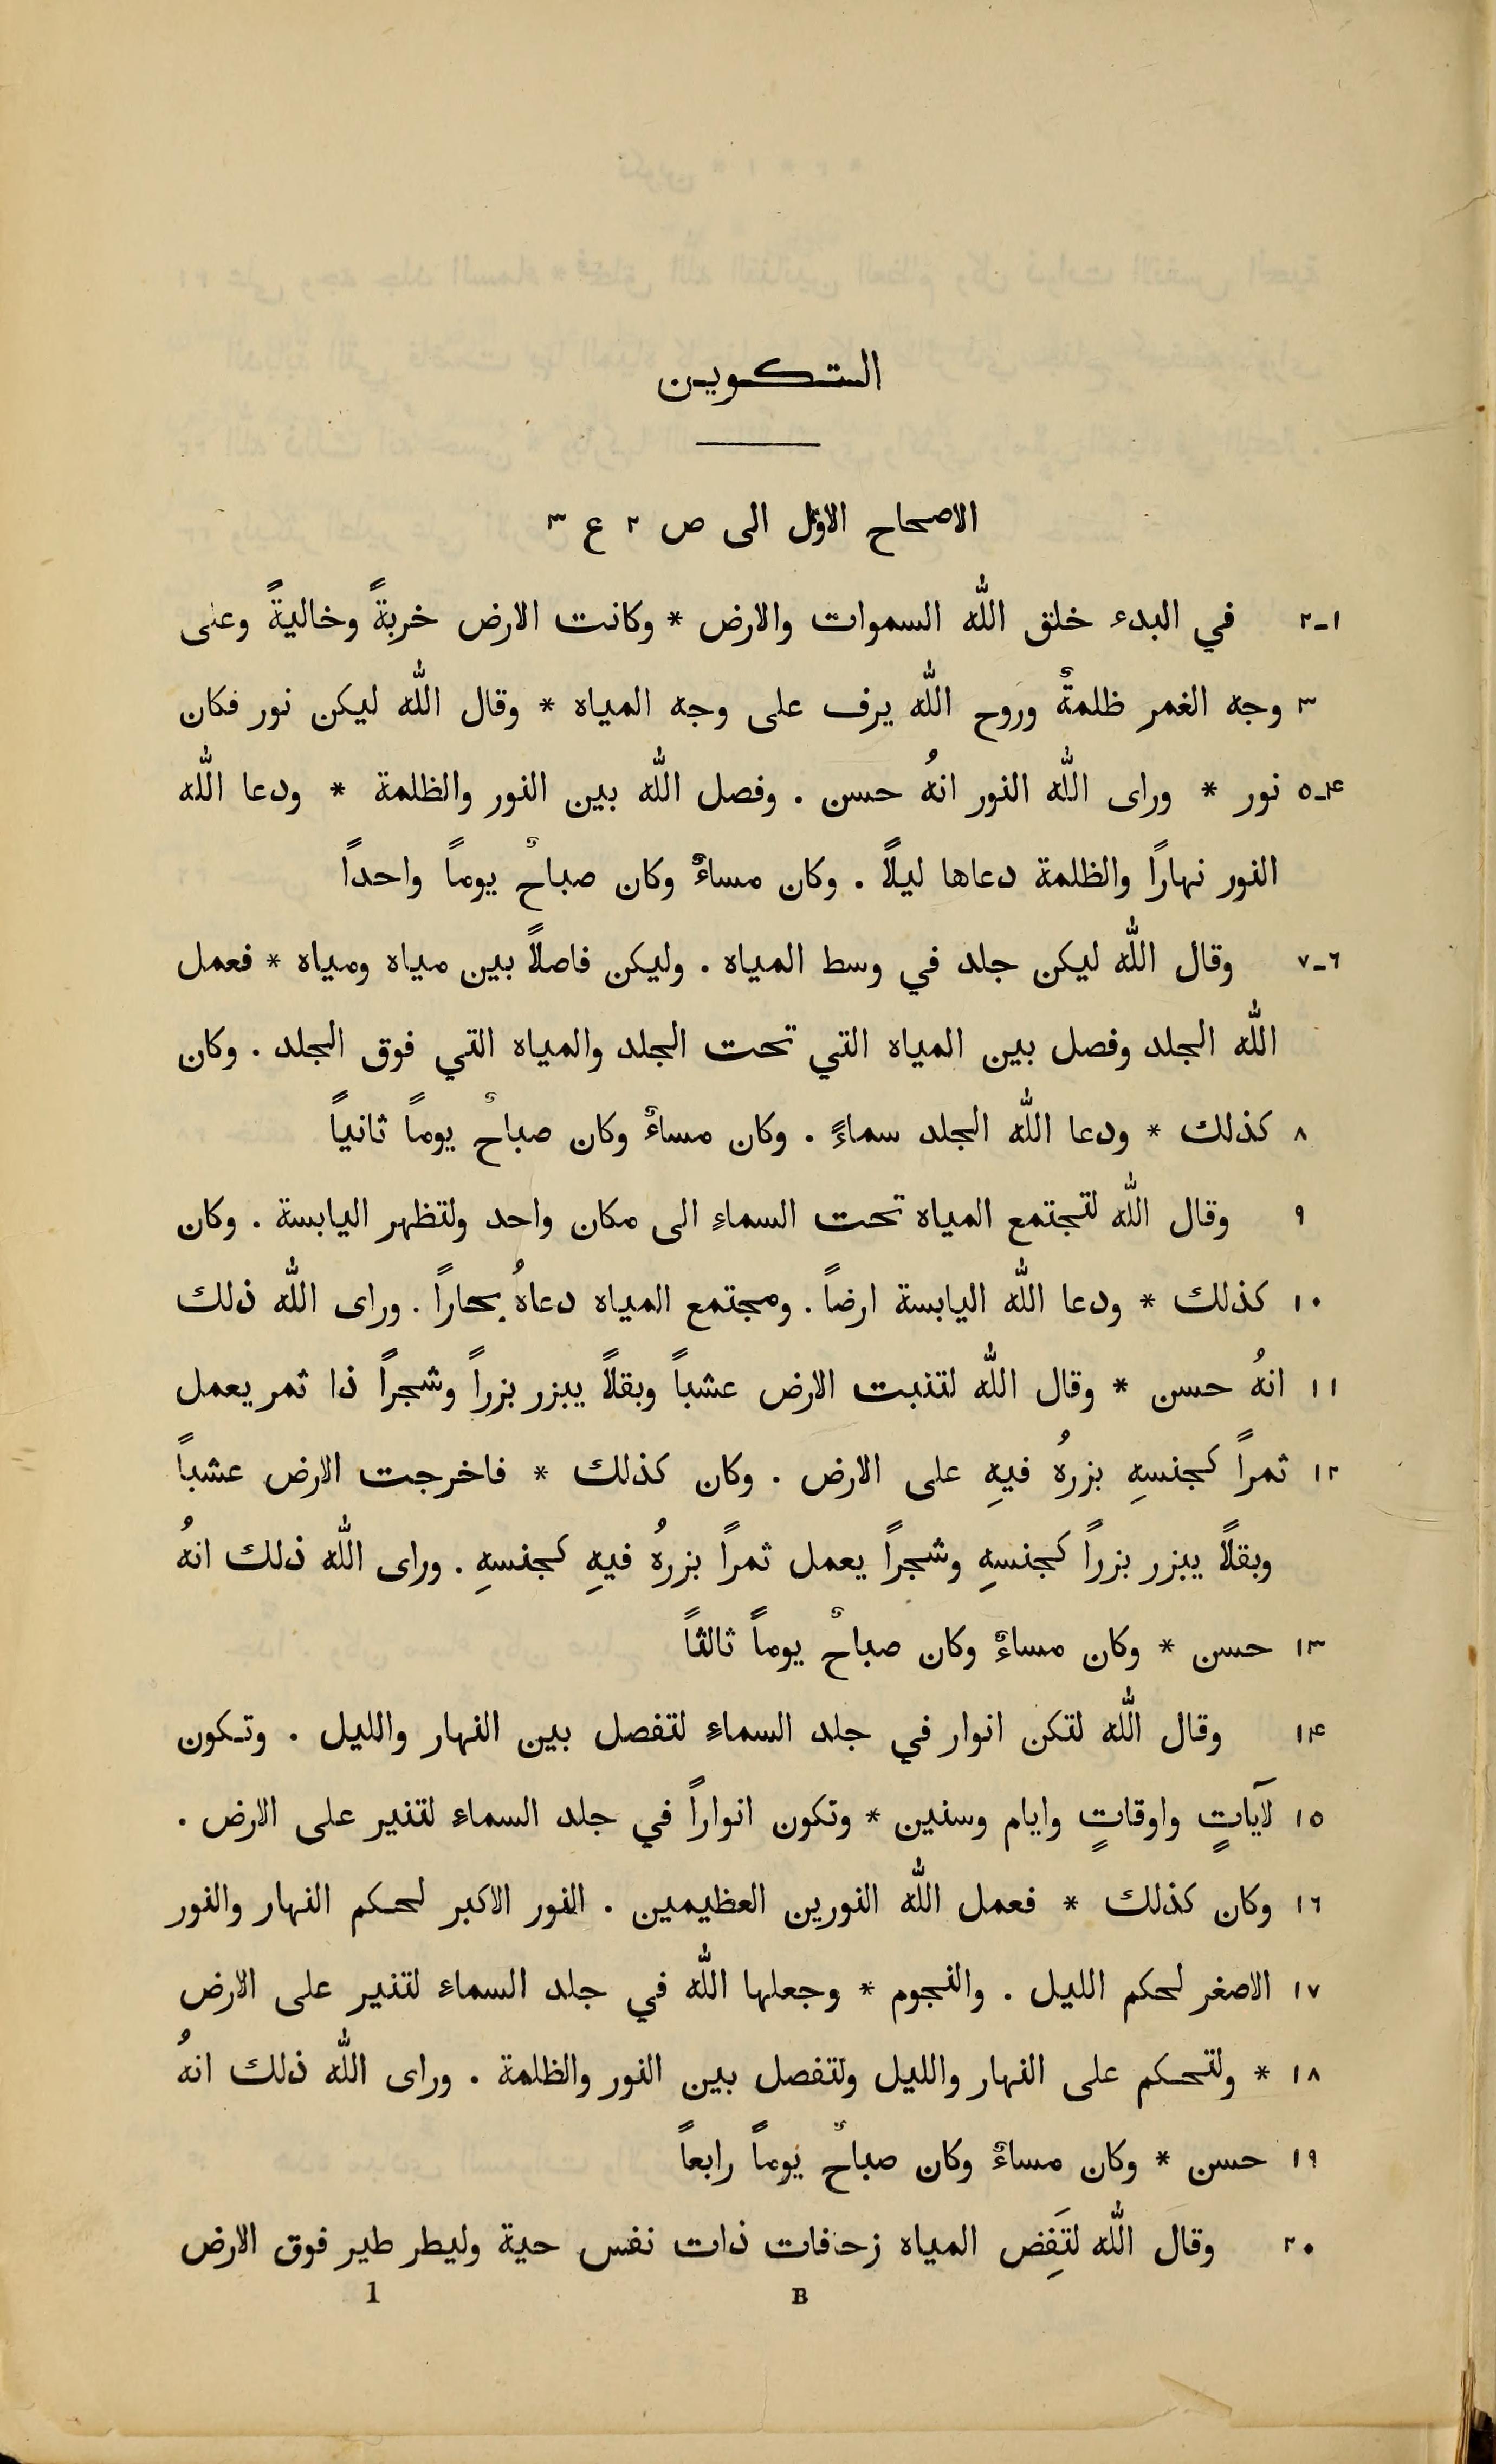 التكوين
الاصحاح الاوّل الى ص ٢ ع ٣
١-٢ في البدء خلق الله السموات والارض * وكانت الارض خربةً وخاليةً وعلى
٣ وجه الغمر ظلمةٌ وروح الله يرف على وجه المياه * وقال الله ليكن نور فكان
٤-٥ نور * وراى الله النور انهُ حسن . وفصل الله بين النور والظلمة * ودعا الله
النور نهاراً والظلمة دعاها ليلاً . وكان مساءٌ وكان صباحٌ يوماً واحداً
٦-٧ وقال الله ليكن جلد في وسط المياه . وليكن فاصلاً بين مياه ومياه * فعمل
الله الجلد وفصل بين المياه التي تحت الجلد والمياه التي فوق الجلد . وكان
٨ كذلك * ودعا الله الجلد سماءً . وكان مساءٌ وكان صباحٌ يوماً ثانياً
٩ وقال الله لتجتمع المياه تحت السماءِ الى مكان واحد ولتظهر اليابسة . وكان
١٠ كذلك * ودعا الله اليابسة ارضاً . ومجتمع المياه دعاهُ بحاراً . وراى الله ذلك
١١ انهُ حسن * وقال الله لتنبت الارض عشباً وبقلاً يبزر بزراً وشجراً ذا ثمر يعمل
١٢ ثمراً كجنسهِ بزرهُ فيهِ على الارض . وكان كذلك * فاخرجت الارض عشباً
وبقلاً يبزر بزراً كجنسهِ وشجراً يعمل ثمراً بزرهُ فيهِ كجنسهِ . وراى الله ذلك انهُ
١٣ حسن * وكان مساءٌ وكان صباحٌ يوماً ثالثاً
١٤ وقال الله لتكن انوار في جلد السماءِ لتفصل بين النهار والليل . وتكون
١٥ لآياتٍ واوقاتٍ وايام وسنين * وتكون انواراً في جلد السماء لتنير على الارض .
١٦ وكان كذلك * فعمل الله النورين العظيمين . النور الاكبر لحكم النهار والنور
١٧ الاصغر لحكم الليل . والنجوم * وجعلها الله في جلد السماء لتنير على الارض
١٨ * ولتحكم على النهار والليل ولتفصل بين النور والظلمة . وراى الله ذلك انهُ
١٩ حسن * وكان مساءٌ وكان صباحٌ يوماً رابعاً
٢٠ وقال الله لتَفِض المياه زحافات ذات نفس حية وليطر طير فوق الارض
1 B